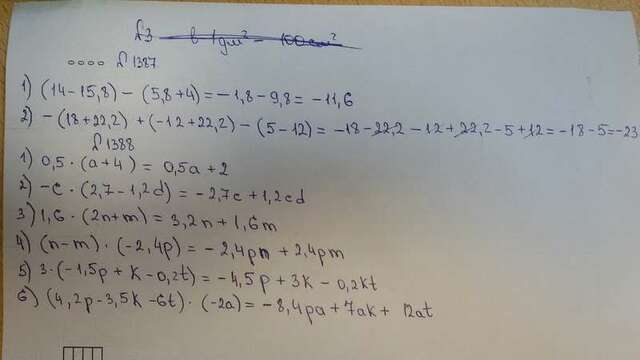 №3 в 1 дм² – 100 см²
№1387
1) (14-15,8) - (5,8+4) = -1,8-9,8 = -11,6
2) -(18+22,2) + (-12+22,2) - (5-12) = -18-22,2-12+22,2-5+12 = -18-5=-23
№1388
1) 0,5·(a+4) = 0,5a+2
2) -c·(2,7-1,2d) = -2,7c+1,2cd
3) 1,6·(2n+m) = 3,2n+1,6m
4) (n-m)·(-2,4p) = -2,4pn+2,4pm
5) 3·(-1,5p+k-0,2t) = -4,5p+3k-0,2kt
6) (4,2p-3,5k-6t)·(-2a) = -8,4pa+7ak+12at